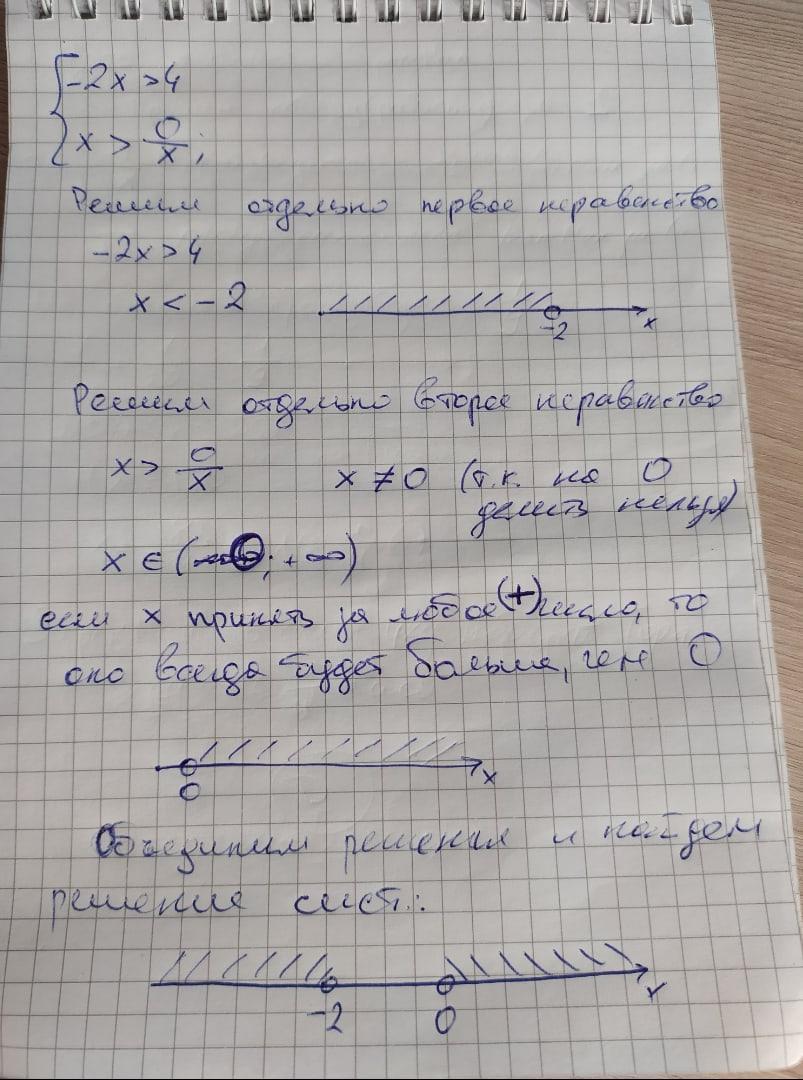 {-2x > 4
x > 0/x;
Решим отдельно первое неравенство
-2x > 4
x < -2
-2 x
Решим отдельно второе неравенство
x > 0/x x ≠ 0 (т.к. на 0
делить нельзя)
x ∈ (0; +∞)
если x принять за любое (+) число, то
оно всегда будет больше, чем 0
x
0
Объединим решения и найдем
решение сист.:
x
-2 0